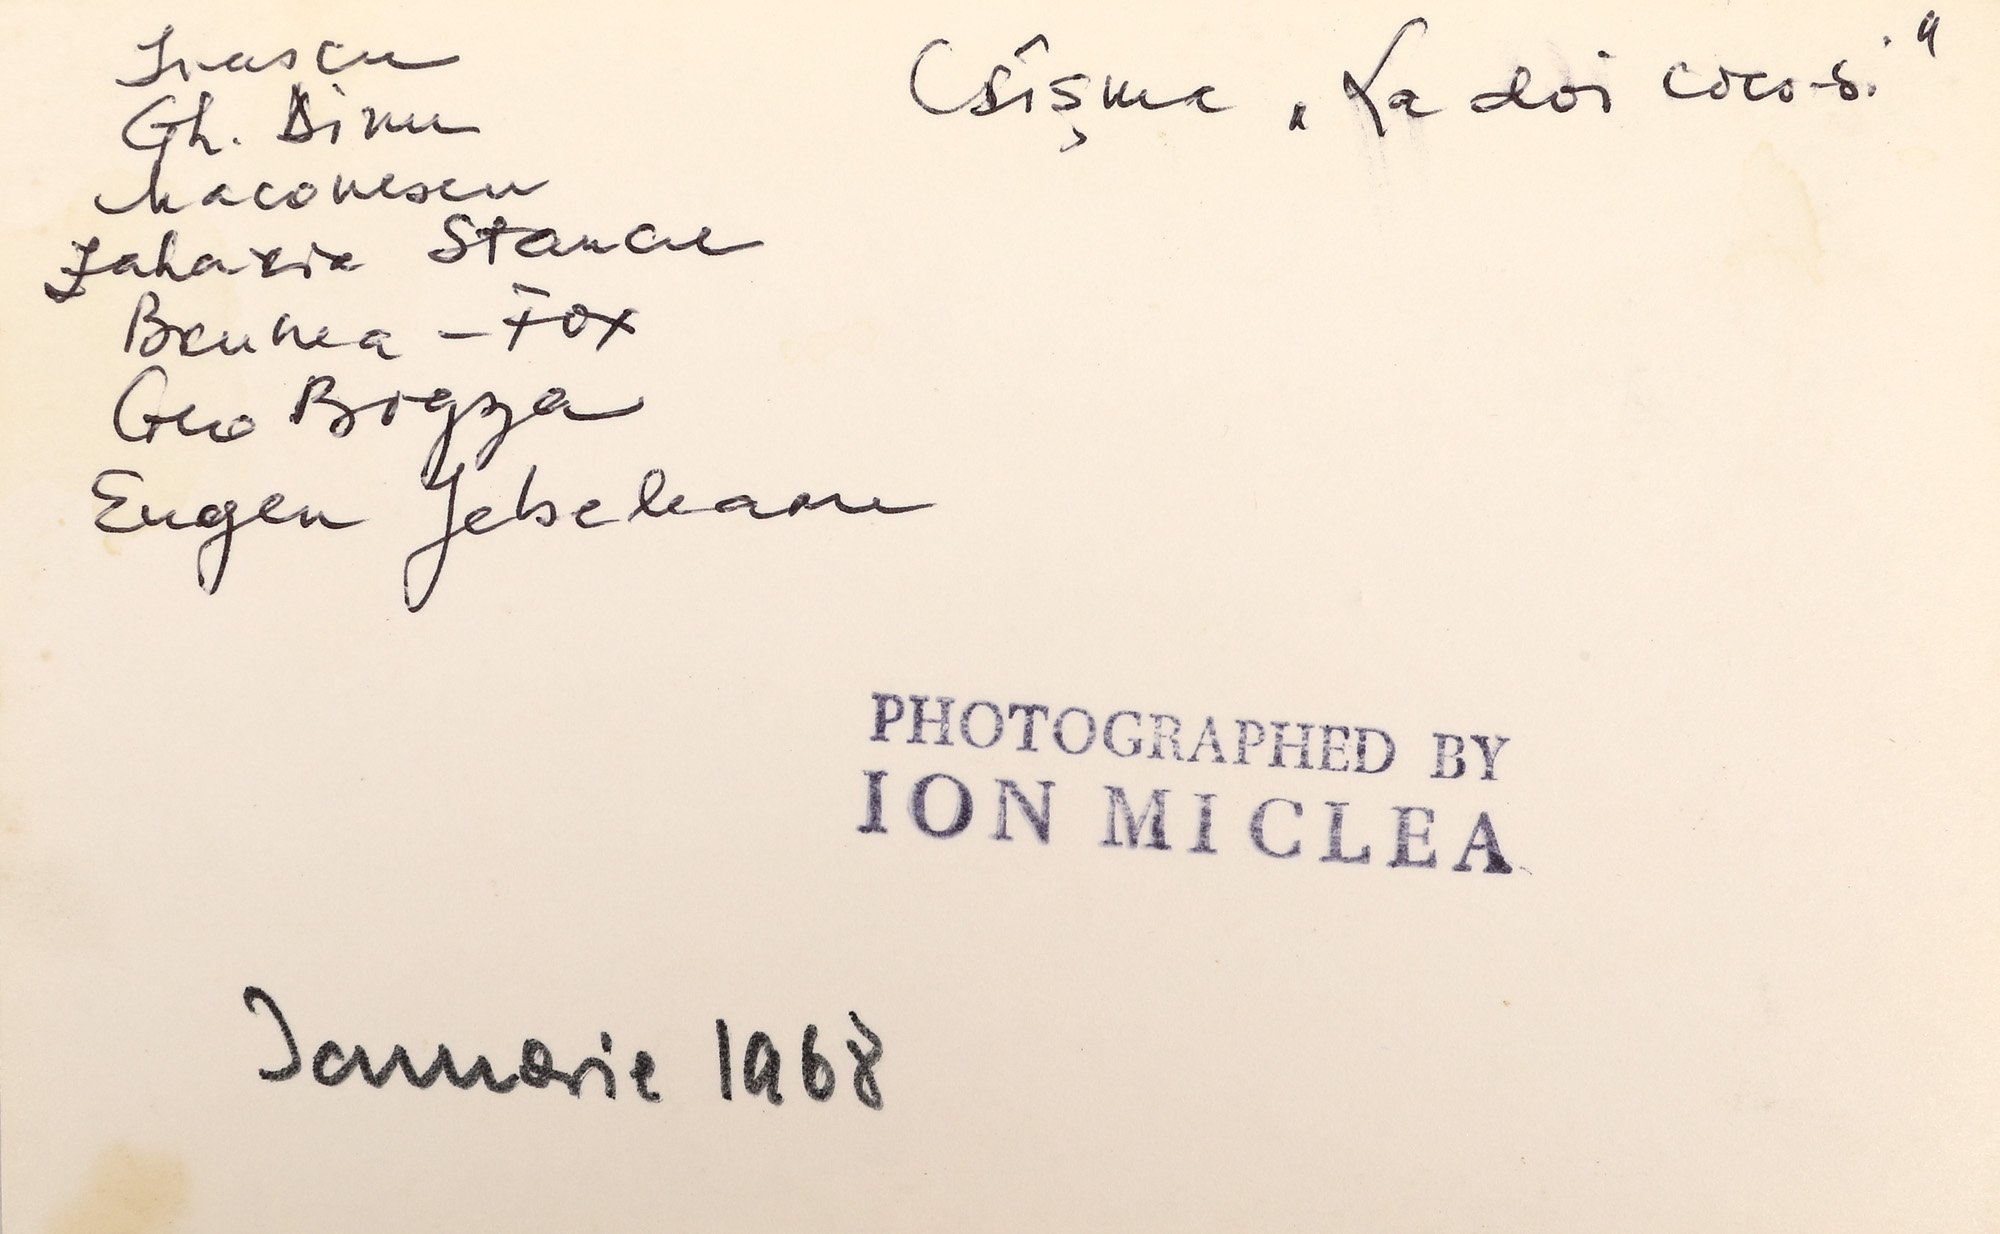 Ivascu
Gh. Dinu
Macovescu
Zaharia Stancu
Brunea - Fox
Geo Bogza
Eugen Jebeleanu
Csîşma „La doi cocosi"
PHOTOGRAPHED BY
ION MICLEA
Ianuarie 1968